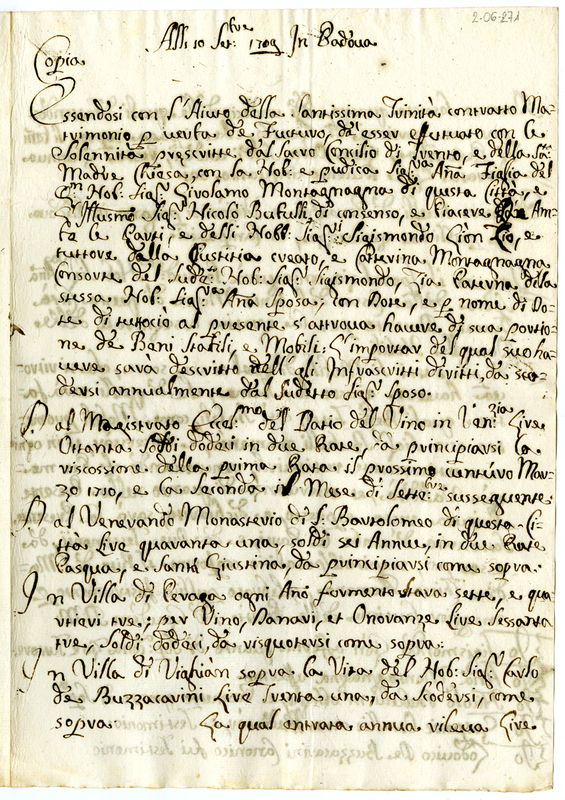 2-06-271
Alli 10 Set:bre 1709 In Padova
Copia
Essendosi con l'Aiuto della Santissima Trinità contratto Ma-
trimonio p verba de Futuro, da esser effetuato con le
Solennità prescritte dal Sacro Concilio di Trento, e della Sta:
Madre Chiesa, con la Nob: e pudica Sigra Ana Figlia del
Nob: Sigr Girolamo Montagnagna di questa Città, e
l'Illusmo Sigr Nicolò di consenso, e piacere de Am-
be le Parti, e delli Nobb: Sigri: Sigismondo Lion Zio, e
tuttore dalla Giustitia creato, e Catterina Montagnagna
Consorte del Sudo: Nob: Sigr Sigismondo, Zia Paterna della
stessa Nob: Sigra Ana Sposa; con Dote, e p nome di Do-
te di tuttociò al presente s'attrova havere di sua portio-
ne de Beni Stabili, e Mobili: L'importar del qual suo ha-
vere sarà descritto nelli gli Infrascritti diritti, da sco-
dersi annualmente dal sudetto Sigr Sposo.
Dal Magistrato Eccelmo del Datio del Vino in Venzia Lire
Ottanta Soldi dodeci in due Rate, da principiarsi la
riscossione della prima Rata il prossimo venturo Mar-
zo 1710, e la Seconda il Mese di Settebre susseguente
Dal Venerando Monasterio di S. Bartolomeo di questa Ci-
ttà Lire quaranta una, soldi sei Annue, in due Rate
Pasqua, e Santa Giustina, da principiarsi come sopra:
In Villa di Peraga ogni Ano formento stara sette, e qua-
rtieri tre; per Vino, Danari, et Onoranze Lire Sessanta
tre, Soldi dodeci, da risquotersi come sopra:
In Villa di Vighian sopra la Vita del Nob: Sigr Carlo
de Buzzacarini Lire Trenta una, da Scodersi, come
sopra: La qual entrata annua rileva Lire